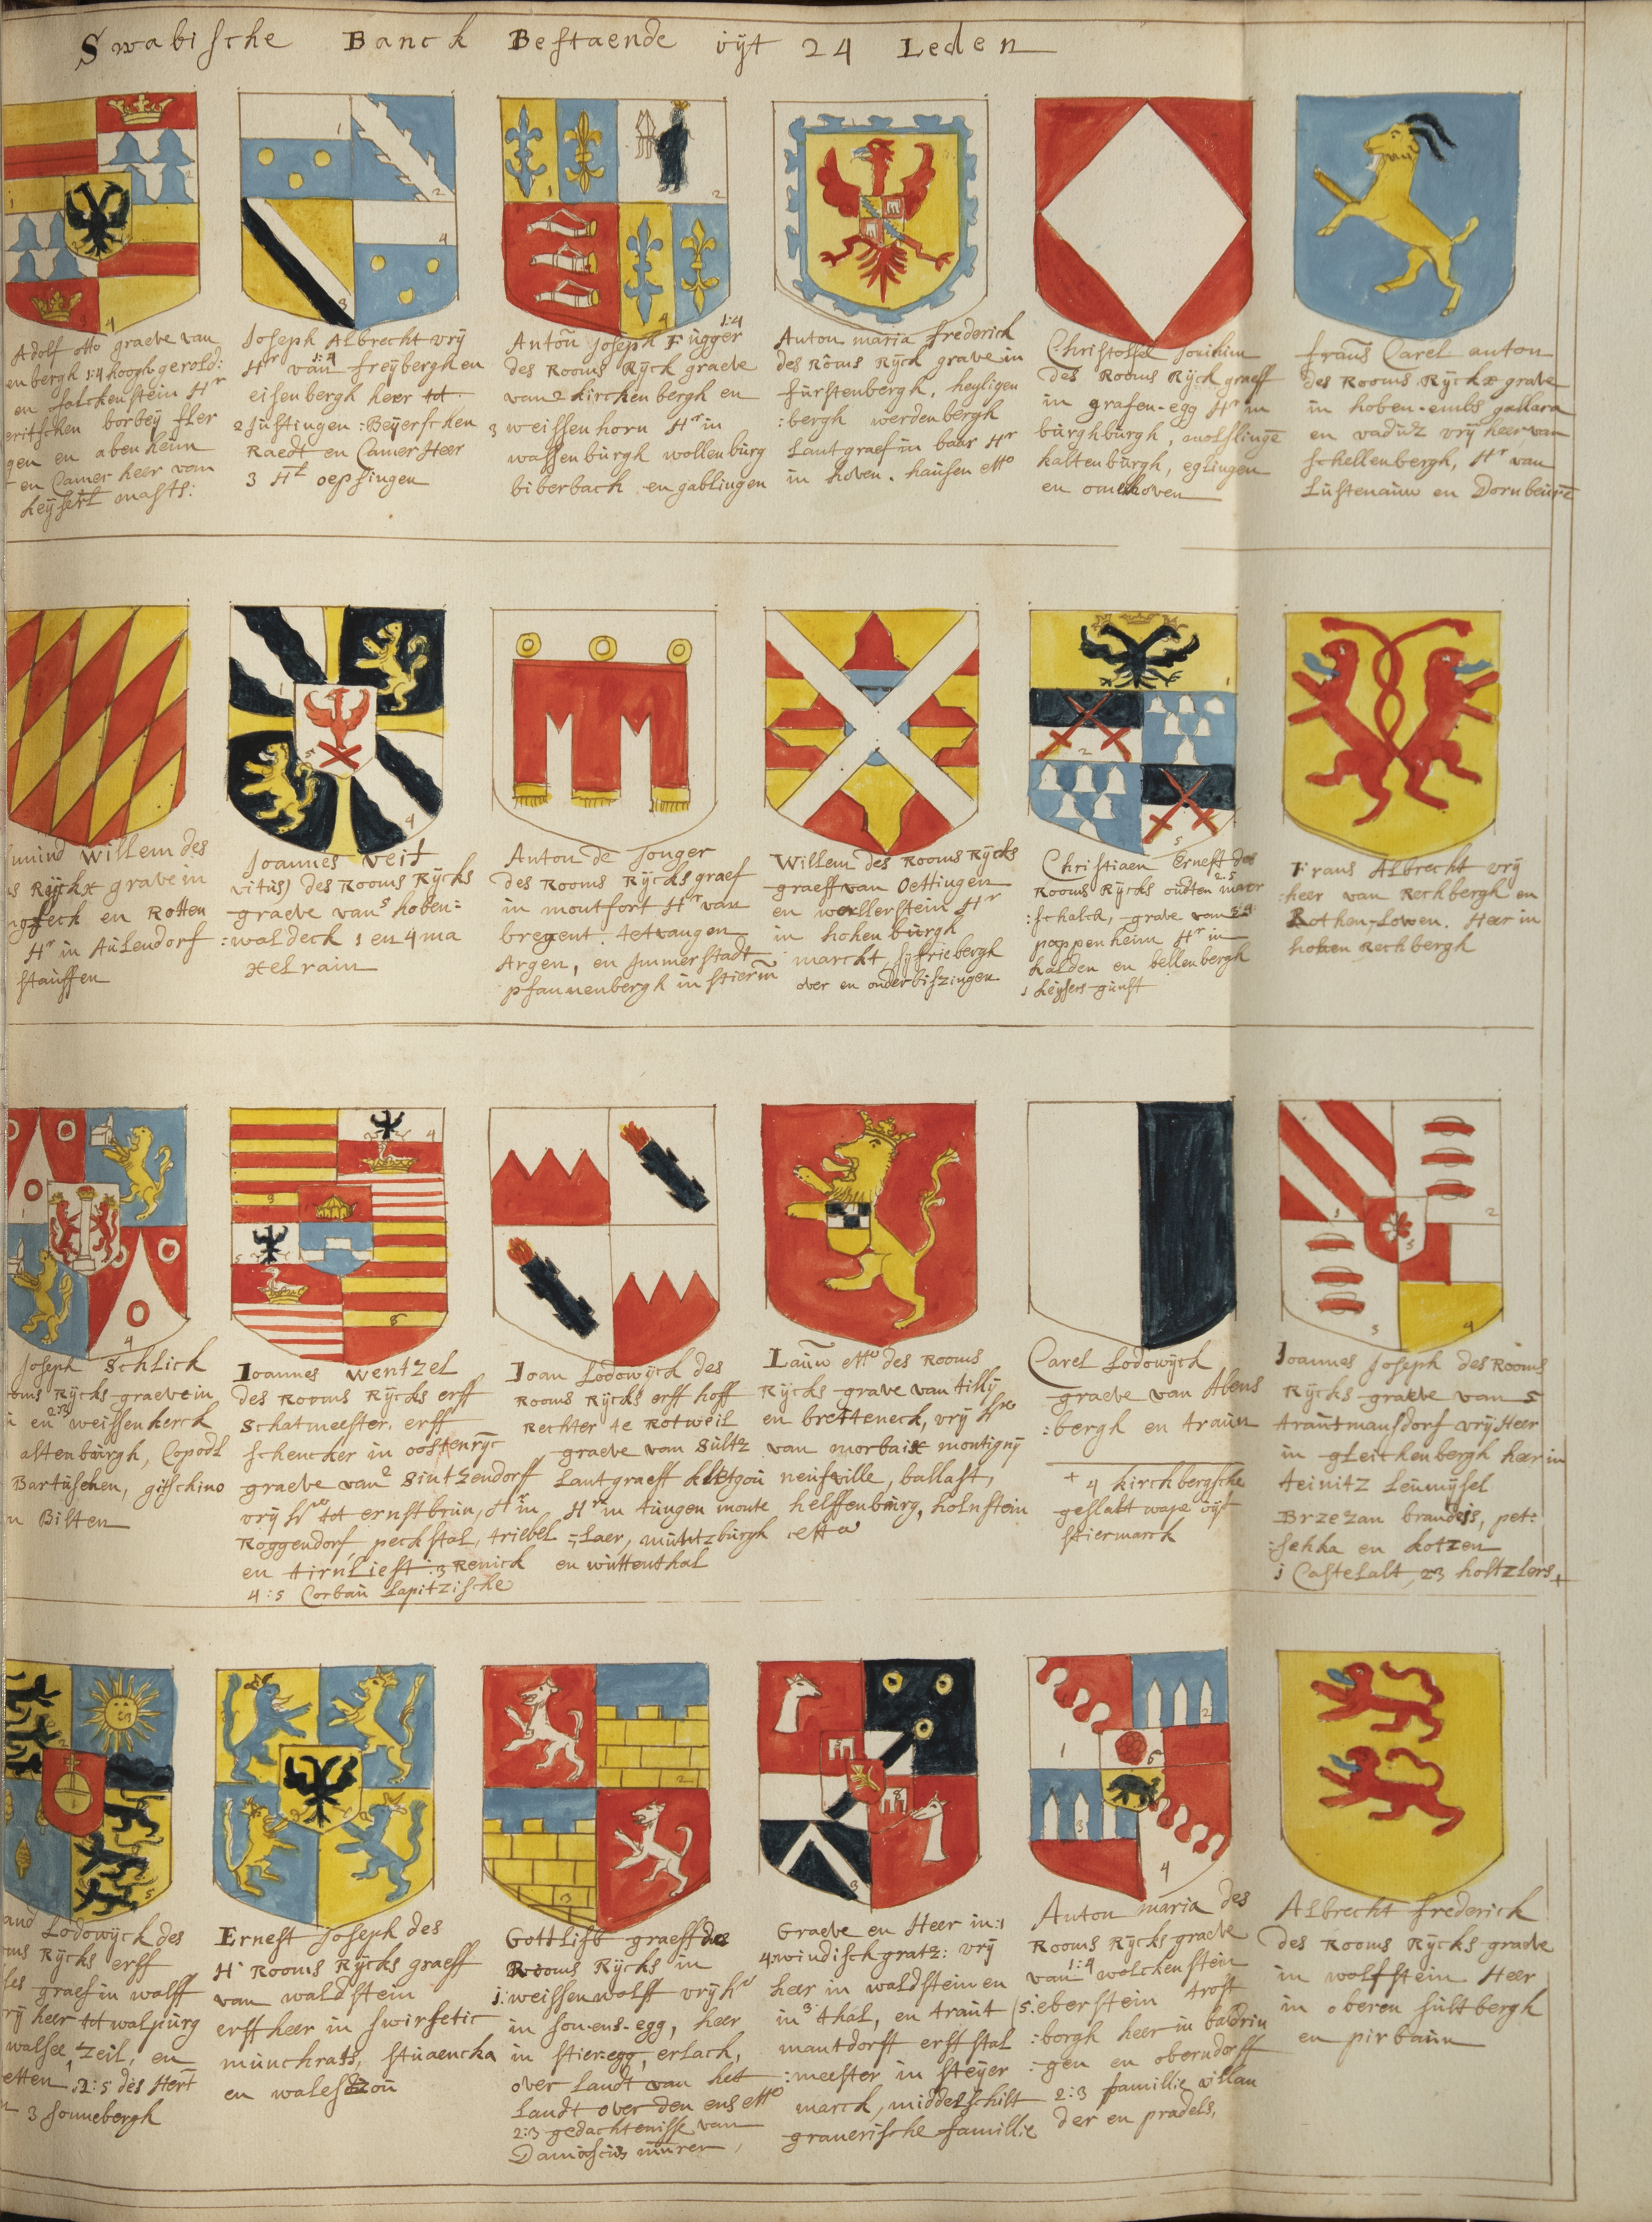 Swabische Banck Bestaende uÿt 24 Leden
Adolf otto graeve van
en bergh 1:4 hoogh gerold:
en falckenstein Hr
eritschen borbeÿ Her
gen en abenheim
en Camer heer van
keÿserl maÿts:
Joseph Albrecht vrÿ
Hr van 1:4 freÿbergh en
eisenbergh heer tot
2 Justingen :Beÿerschen
Raedt en Camer Heer
3 Ht oepfingen
Anton joseph Fugger 1:4
des Rooms Rÿck graeve
van 2 kirchenbergh en
3 weissenhorn Hr in
wassenburgh wollenburg
biberbach en gablingen
Anton maria frederick
des Rooms Rÿck grave in
fürstenbergh, heyligen
:bergh werdenbergh
Lantgraef in baar Hr
in hoven. hausen etto
Christoffel Joachim
des Rooms Rÿck graeff
in grafen-egg Hr in
burghburgh, motslinge
kaltenburgh, eglingen
en omelhoven
frans Carel anton
des Rooms Rÿckx grave
in hoben-embs gallara
en vadutz vrÿ heer van
schellenbergh, Hr van
Lustenauw en Dornbeurē
mund Willem des
s Rÿckx grave in
ngseck en Rotten
Hr in Aulendorf
stauffen
Joannes veit
vitus) des Rooms Rÿcks
graeve van 5 hoben=
:waldeck 1 en 4 ma
xelrain
Anton de Jonger
des Rooms Rÿcks graef
in montfort Hr van
bregent. tetvangen
Argen, en Immerstadt
pfannenbergh in stierm̄
Willem des Rooms Rÿcks
graeff van Oettingen
en wallerstein Hr
in hohen burgh
marckt, sÿfriebergh
over en onderbiszingen
Christiaen Ernest des
Rooms Rÿcks oudten 2.5 maer
:schalck, grave van 3:4
pappenheim Hr in
halden en bellenbergh
1 keÿsers gunst
Frans Albrecht vrÿ
:heer van Rechbergh en
Rothen,-Lowen. Heer in
hohen Rechbergh
Joseph Schlick
oms Rÿcks graeve in
en 2:3 weissenkerck
altenburgh, Copodl
Bartuschen, gitschino
n Bilten
Ioannes wentzel
des Rooms Rÿcks erff
Schatmeester. erff
schencker in oostenrÿc
graeve van 2 Sintzendorff
vrÿ Hr tot ernstbrun, Hr in
Roggendorf, peckstal, triebel
en tirnliest :3 Renick
4:5 Corbau Lapitzische
Joan Lodowÿck des
Rooms Rÿcks erff hoff
Rechter te Rotweil
graeve van Sultz
Lantgraeff kletgou
Hr in tungen monte
-:Laer, muntzburgh
en wuttenthal
Lauw etto des Rooms
Rÿcks grave van tillÿ
en bretteneck, vrÿ Hre
van morbaix montignÿ
neufville, ballast,
helffenburg, holnstein
etta
Carel Lodowÿck
graeve van Abens
:bergh en traun
+ 4 kirchbergsche
geslalt wape uÿt
stiermarck
Ioannes Joseph des Rooms
Rÿcks graeve van 5
trautmansdorf vrÿ Heer
in gleichenbergh heer in
teinitz Leumÿsel
Brzezan brandeis, pet:
:sekka en kotzen
1 Castelalt, 23 holtzlers+
and Lodowÿck des
oms Rÿcks erff
ses graef in walff
rÿ heer tot walpurg
walsee, zeil, en
etten, 2:5 des Hert
n 3 sonnebergh
Ernest Joseph des
Hr Rooms Rÿcks graeff
van waldstein
erff heer in swirsetic
munchrats, stuaencka
en walestzou
Gottlifb graeff des
Rooms Rÿcks in
1: weissenwolff vrÿ hr
in son-ens-egg, heer
in stier:egg, erlach,
over landt van het
Landt over den ens etto
2:3 gedachtenisse van
Damascus muren,
Graeve en Heer in:1
4:windischgratz: vrÿ
heer in waldstein en
in 3 thal, en traut
mantdorff erff stal
:meester in steÿer
marck, middelschilt
grauerische famillie
Anton maria des
Rooms Rÿcks graeve
van 1:4 wolckenstein
5:eberstein trost
:borgh heer in baldrin
-gen en oberndorff
2:3 famillie villan
der en pradels,
Albrecht frederick
des Rooms Rÿcks grave
in wolfstein Heer
in oberen sultbergh
en pirbaum